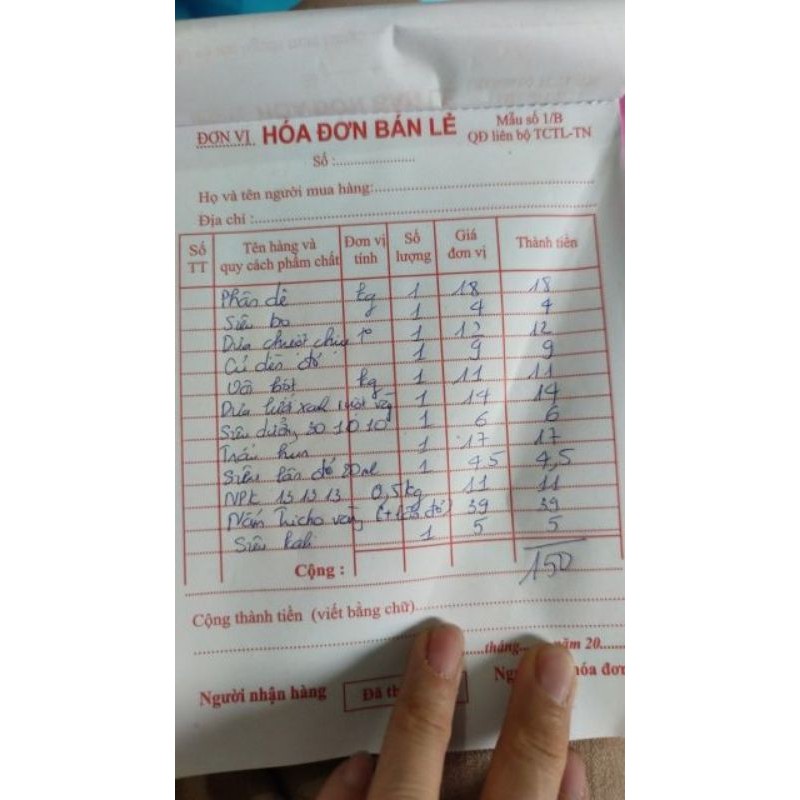 ĐƠN VỊ HÓA ĐƠN BÁN LẺ Mẫu số 1/B
QĐ liên bộ TCTL-TN
Số :
Họ và tên người mua hàng:
Địa chỉ :
Số TT Tên hàng và quy cách phẩm chất Đơn vị tính Số lượng Giá đơn vị Thành tiền
Phân dê kg 1 18 18
Siêu bo 1 4 4
Dưa chuột 1 12 12
Củ dền đỏ 1 9 9
Vôi bột kg 1 11 11
Dưa lưới xanh ruột 1 14 14
Siêu dưỡng 30 10 10 1 6 6
1 17 17
Siêu lân đỏ 20ml 1 4,5 4,5
NPK 13 13 13 0,5kg 11 11
Nấm Tricho 39 39
Siêu kali 1 5 5
Cộng : 150
Cộng thành tiền (viết bằng chữ)
tháng năm 20
Người nhận hàng Đã th Ng hóa đơ